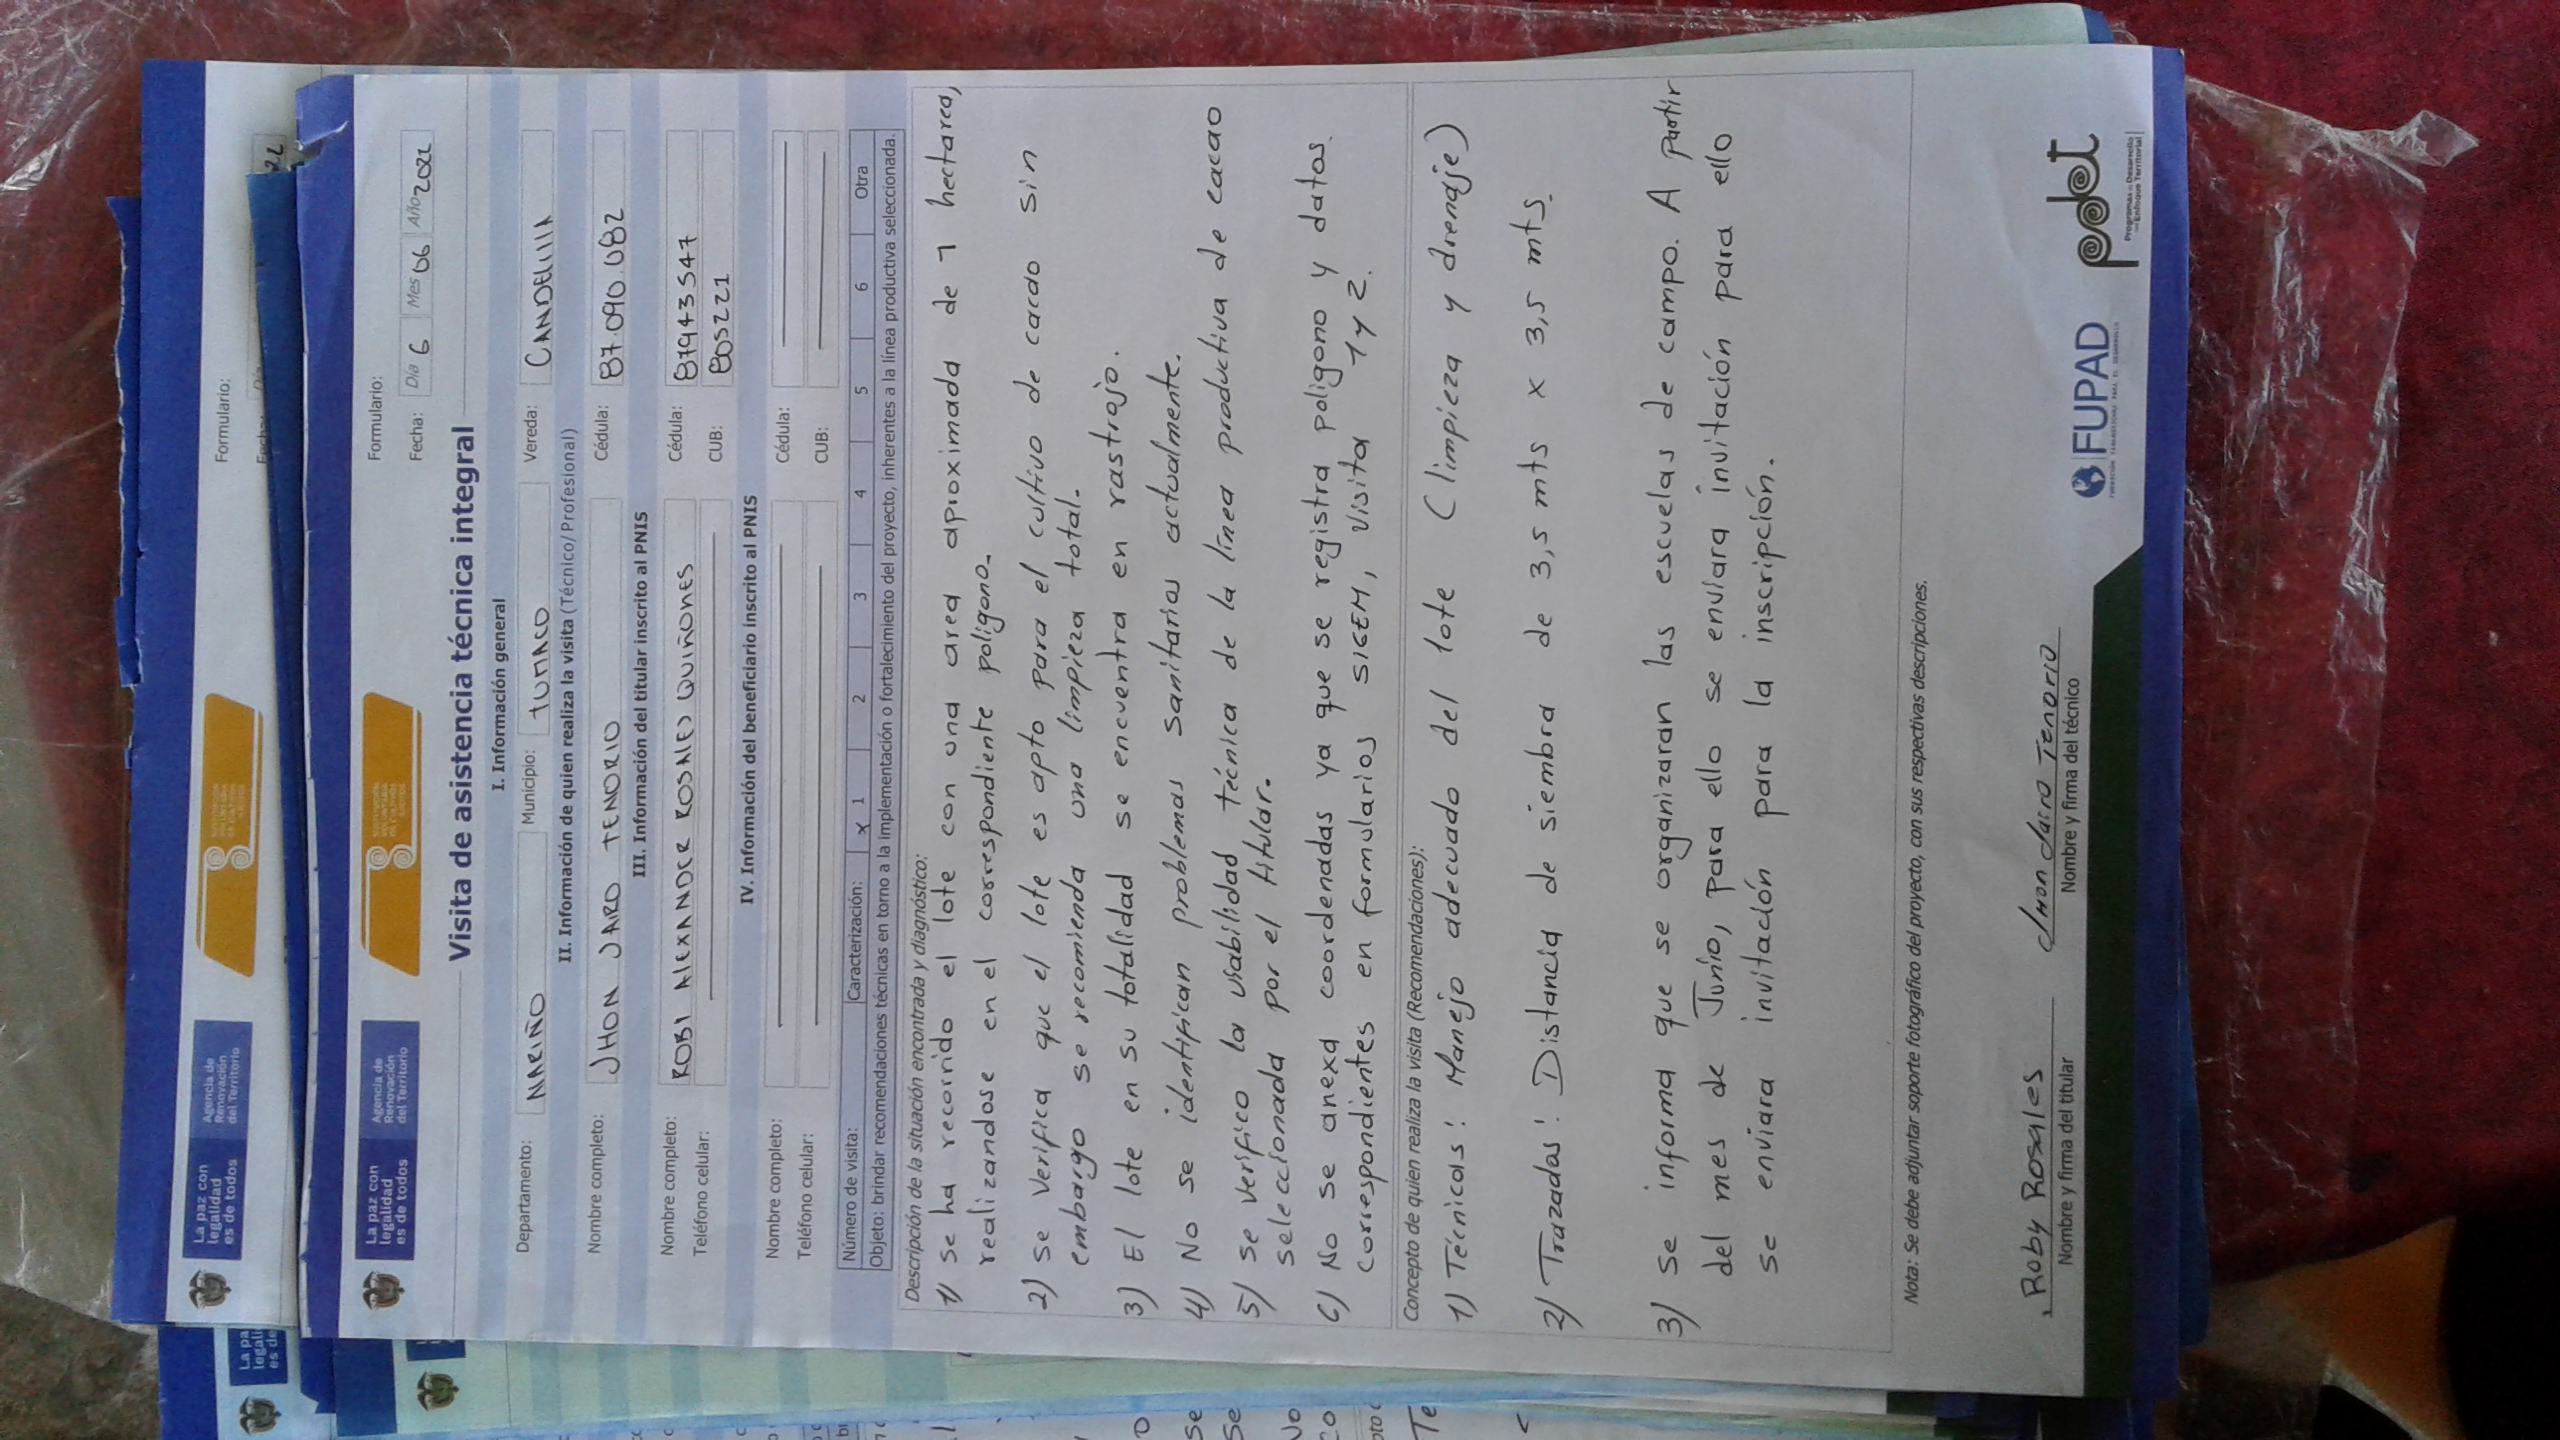 La paz con
legalidad
es de todos
Agencia de
Renovación
del Territorio
Formulario:
La paz con
legalidad
es de todos
Agencia de
Renovación
del Territorio
SUSTITUCIÓN
VOLUNTARIA
DE CULTIVOS
ILÍCITOS
Formulario:
Fecha: Día 6 Mes 06 Año 2022
Visita de asistencia técnica integral
I. Información general
Departamento: NARIÑO Municipio: TUMACO Vereda: CANDELILLA
II. Información de quien realiza la visita (Técnico/Profesional)
Nombre completo: JHON JAIRO TENORIO Cédula: 87.090.082
III. Información del titular inscrito al PNIS
Nombre completo: ROBI ALEXANDER ROSALES QUIÑONES Cédula: 87943547
Teléfono celular: CUB: 805221
IV. Información del beneficiario inscrito al PNIS
Nombre completo: Cédula:
Teléfono celular: CUB:
Número de visita: Caracterización: x 1 2 3 4 5 6 Otra
Objeto: brindar recomendaciones técnicas en torno a la implementación o fortalecimiento del proyecto, inherentes a la línea productiva seleccionada.
Descripción de la situación encontrada y diagnóstico:
1) se ha recorrido el lote con una area aproximada de 1 hectarea,
realizandose en el correspondiente poligono.
2) se verifica que el lote es apto para el cultivo de cacao sin
embargo se recomienda una limpieza total.
3) El lote en su totalidad se encuentra en rastrojo.
4) No se identifican problemas sanitarios actualmente.
5) se verifico la viabilidad técnica de la línea productiva de cacao
seleccionada por el titular.
6) No se anexa coordenadas ya que se registra poligono y datos
correspondientes en formularios SIGEM, visita 1 y 2.
Concepto de quien realiza la visita (Recomendaciones):
1) Técnicas: Manejo adecuado del lote (limpieza y drenaje)
2) Trazadas: Distancia de siembra de 3,5 mts x 3,5 mts.
3) se informa que se organizaran las escuelas de campo. A partir
del mes de Junio, para ello se enviara invitación para ello
se enviara invitación para la inscripción.
Nota: Se debe adjuntar soporte fotográfico del proyecto, con sus respectivas descripciones.
Roby Rosales
Nombre y firma del titular
Jhon Jairo Tenorio
Nombre y firma del técnico
FUPAD
pdet
Programas de Desarrollo
con Enfoque Territorial